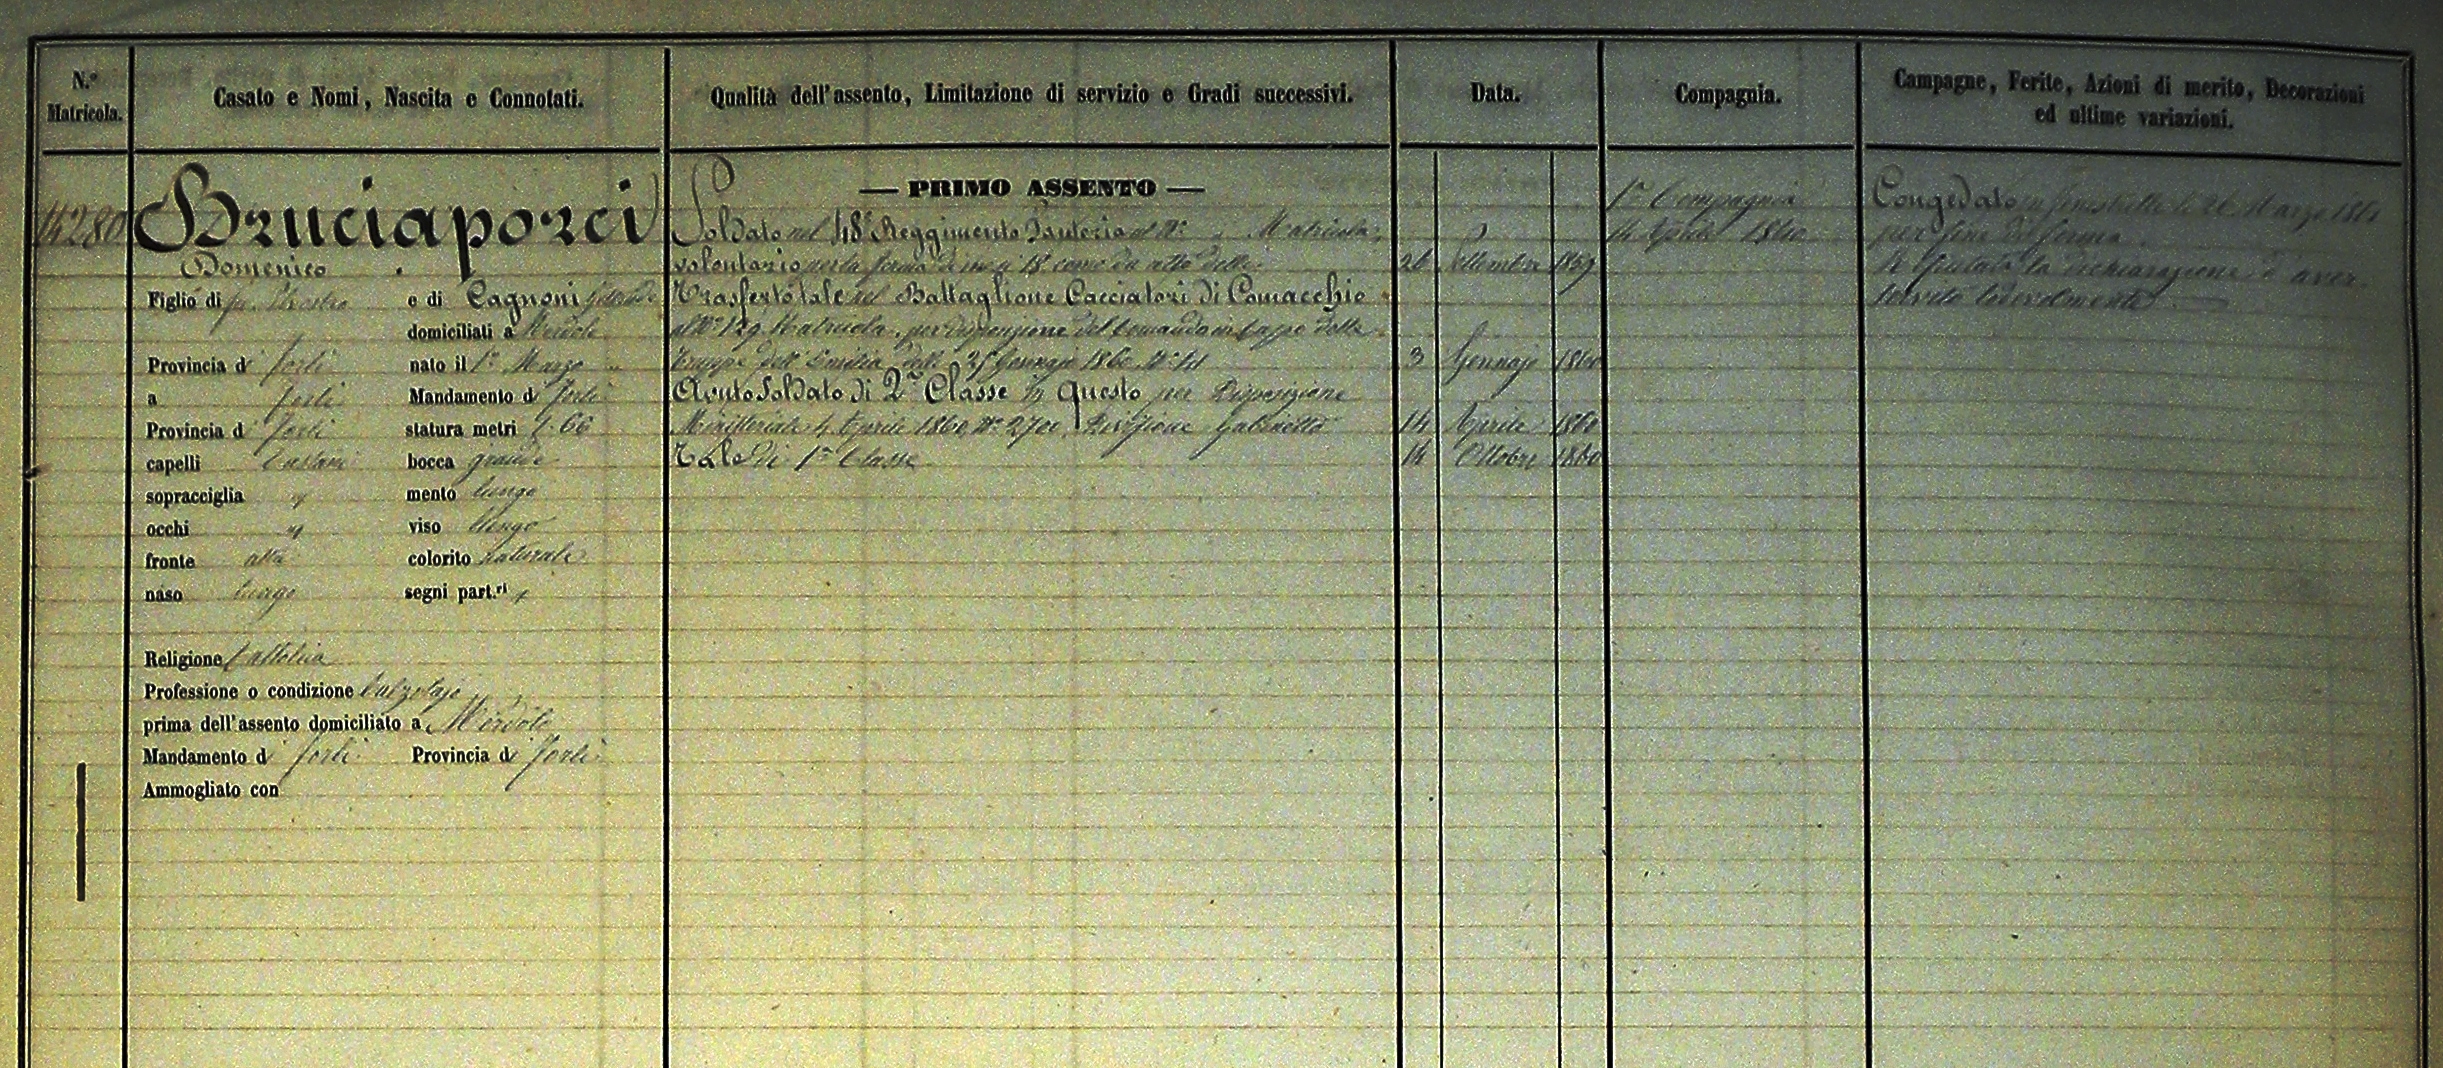 N.º Matricola.
Casato e Nomi, Nascita e Connotati.
Qualità dell'assento, Limitazione di servizio e Gradi successivi.
Data.
Compagnia.
Campagne, Ferite, Azioni di merito, Decorazioni
ed ultime variazioni.
14280
Bruciaporci
Domenico
Figlio di fu e di Cagnoni
domiciliati a
Provincia di Forlì nato il 1º Marzo
a Forlì Mandamento di Forlì
Provincia di Forlì statura metri 1.66
capelli Castani bocca grande
sopracciglia mento lungo
occhi viso lungo
fronte alta colorito naturale
naso lungo segni part.ri
Religione Cattolica
Professione o condizione Calzolajo
prima dell'assento domiciliato a
Mandamento di Forlì Provincia di Forlì
Ammogliato con
— PRIMO ASSENTO —
Soldato nel 48º Reggimento Fanteria al Nº Matricola
volontario per la ferma di mesi 18 come da atto delli 26 Settembre 1859
Trasferto tale nel Battaglione Cacciatori di Comacchio
al Nº 129 Matricola per disposizione del Comando in Capo delle
Truppe dell'Emilia delli 25 Gennajo 1860 Nº 3 Gennajo 1860
Avuto Soldato di 2ª Classe in questo per Disposizione
Ministeriale 4 Aprile 1860 Nº 2700 Divisione Gabinetto 14 Aprile 1860
Tale di 1ª Classe 14 Ottobre 1860
1ª Compagnia
14 Aprile 1860
Congedato in Fenestrelle li 26 Marzo 1861
per fine di ferma.
la dichiarazione d'aver
servito lodevolmente